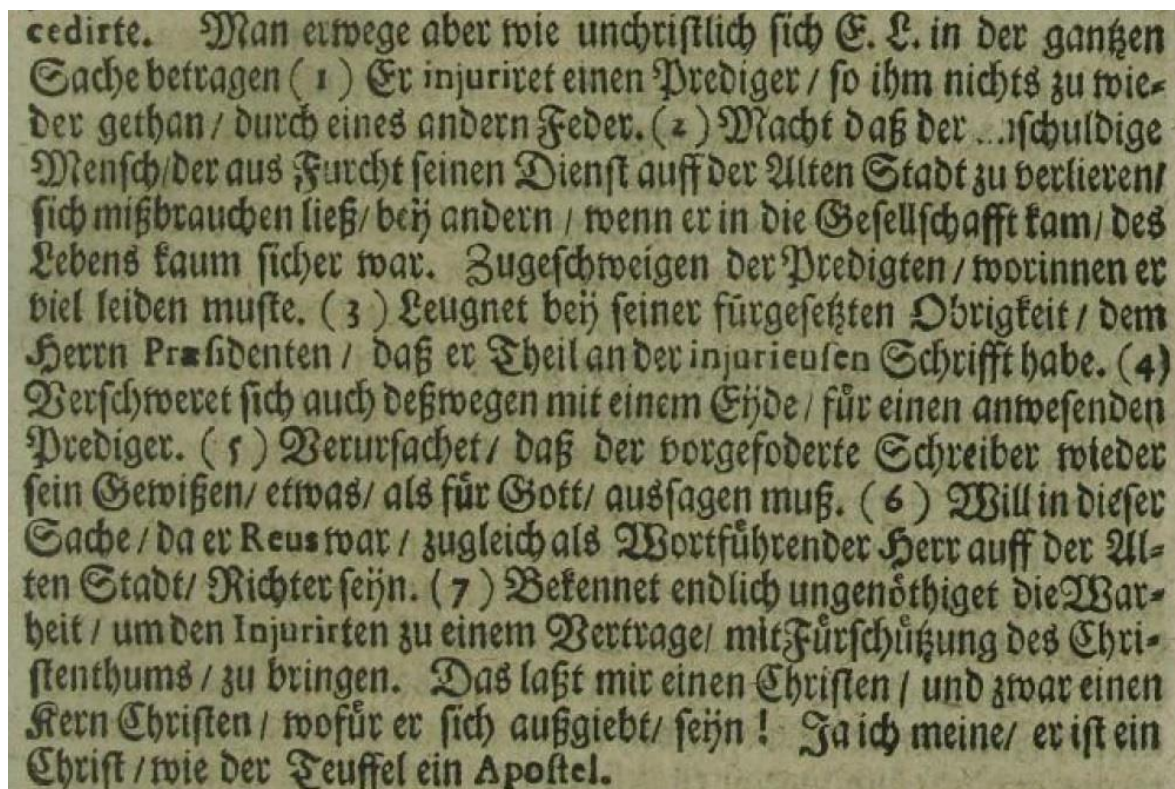 cedirte. Man erwege aber wie unchristlich sich E. L. in der gantzen
Sache betragen (1) Er injuriret einen Prediger / so ihm nichts zu wie⸗
der gethan / durch eines andern Feder. (2) Macht daß der ...schuldige
Mensch/der aus Furcht seinen Dienst auff der Alten Stadt zu verlieren/
sich mißbrauchen ließ/ beÿ andern / wenn er in die Gesellschafft kam/ des
Lebens kaum sicher war. Zugeschweigen der Predigten / worinnen er
viel leiden muste. (3) Leugnet beÿ seiner fürgesetzten Obrigkeit / dem
Herrn Præsidenten / daß er Theil an der injurieusen Schrifft habe. (4)
Verschweret sich auch deßwegen mit einem Eÿde / für einen anwesenden
Prediger. (5) Verursachet/ daß der vorgefoderte Schreiber wieder
sein Gewißen/ etwas/ als für Gott/ aussagen muß. (6) Will in dieser
Sache / da er Reus war / zugleich als Wortführender Herr auff der Al⸗
ten Stadt/ Richter seÿn. (7) Bekennet endlich ungenöthiget die War⸗
heit / um den Injurirten zu einem Vertrage/ mit Fürschützung des Chri⸗
stenthums / zu bringen. Das laßt mir einen Christen / und zwar einen
Kern Christen / wofür er sich außgiebt/ seÿn ! Ja ich meine/ er ist ein
Christ / wie der Teuffel ein Apostel.